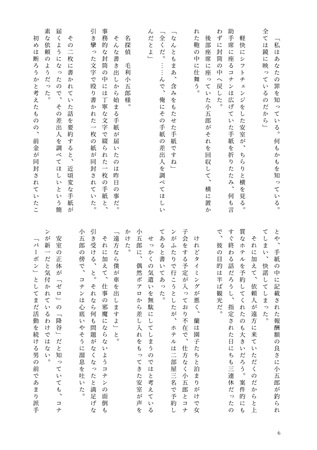 「私はあなたの罪を知っている。何もかもを知っている。
全ては鏡に映っているのだから」
軽快にシフトチェンジをした安室が、ちらりと横を見る。
助手席に座るコナンは広げていた手紙を折りたたみ、何も言
わずに封筒の中へ戻した。
後部座席に座っていた小五郎がそれを回収して、横に置か
れた鞄の中に仕舞う。
「なんともまあ、含みをもたせた手紙ですね」
「全くだ。……んで、俺にその手紙の差出人を調べてほしい
んだとよ」
名探偵　毛利小五郎様。
そんな書き出しから始まる手紙が届いたのは昨日の事だ。
事務的な封筒の中には丁寧な文字で綴られた一枚の手紙と、
引き攣った文字で殴り書かれた一枚の紙が同封されていた。
その二枚に書かれていた話を要約すると、近頃変な手紙が
届くようになったので、その差出人を調べてほしいという簡
素な依頼のようだった。
初めは断ろうかと考えたものの、前金が同封されていたこ
とや、手紙の中に記載された報酬額の良さに小五郎が釣られ
てしまい、快諾してしまったのだ。
それに加えて、依頼人が遠方に来ていただくのだからと上
質なホテルを予約してくれたのも大きいだろう。案件的にも
すぐ終わる話だろうし、指定された日にちも三連休だったの
で、彼の目的は半ば観光だ。
けれどタイミングが悪く、蘭は園子たちと泊まりがけで女
子会をする予定が入っており不在で、仕方なく小五郎とコナ
ンがふたりで行こうとしたが、ホテルは二部屋三名で予約し
てあると書いてあった。
せっかくの気遣いを無駄にしてしまうのではと考えている
小五郎に、偶然ポアロから差し入れをもってきた安室が声を
かけた。
「遠方なら僕が車を出しますよ」と。
それに加えて、仕事の邪魔にならないようコナンの面倒も
引き受ける、と。それなら何も問題がなくなったと満足げな
小五郎の傍で、コナンは心底いやそうに溜息を吐いた。
安室の正体が「ゼロ」の「降谷」だと知っていても、コナ
ンが新一だと気付かれているわけではない。
「バーボン」としてまだ活動を続ける男の前であまり派手
6